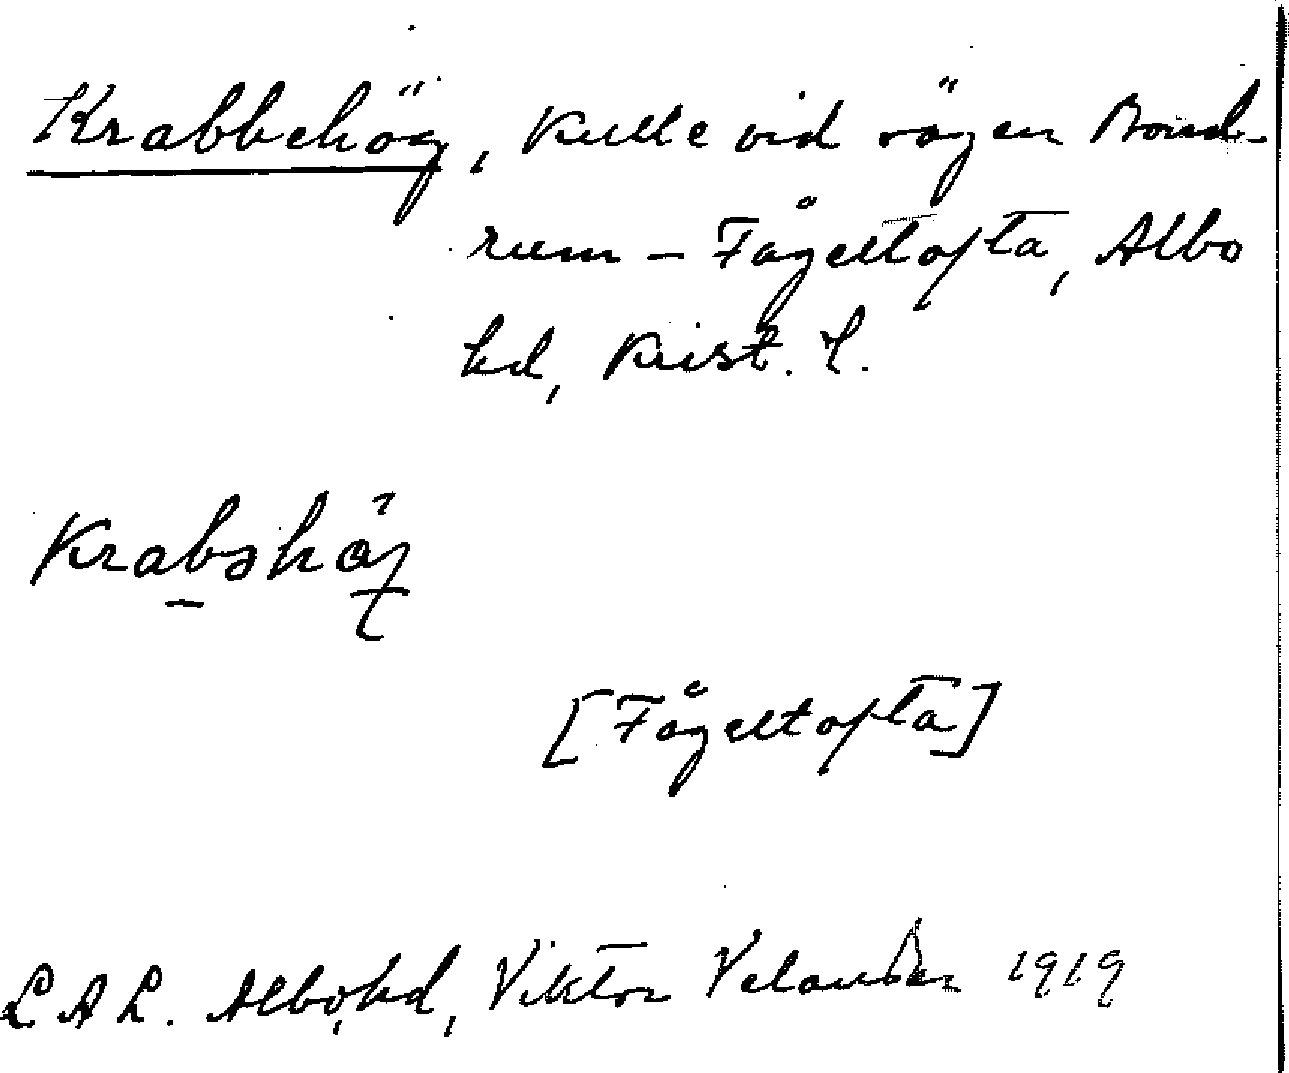 Krabbehög, kulle vid vägen Bond-
rum – Fågeltofta, Albo
hd, Krist. l.
Krabəhöɟ
[Fågeltofta]
L A L. Albo hd, Viktor Velander 1919